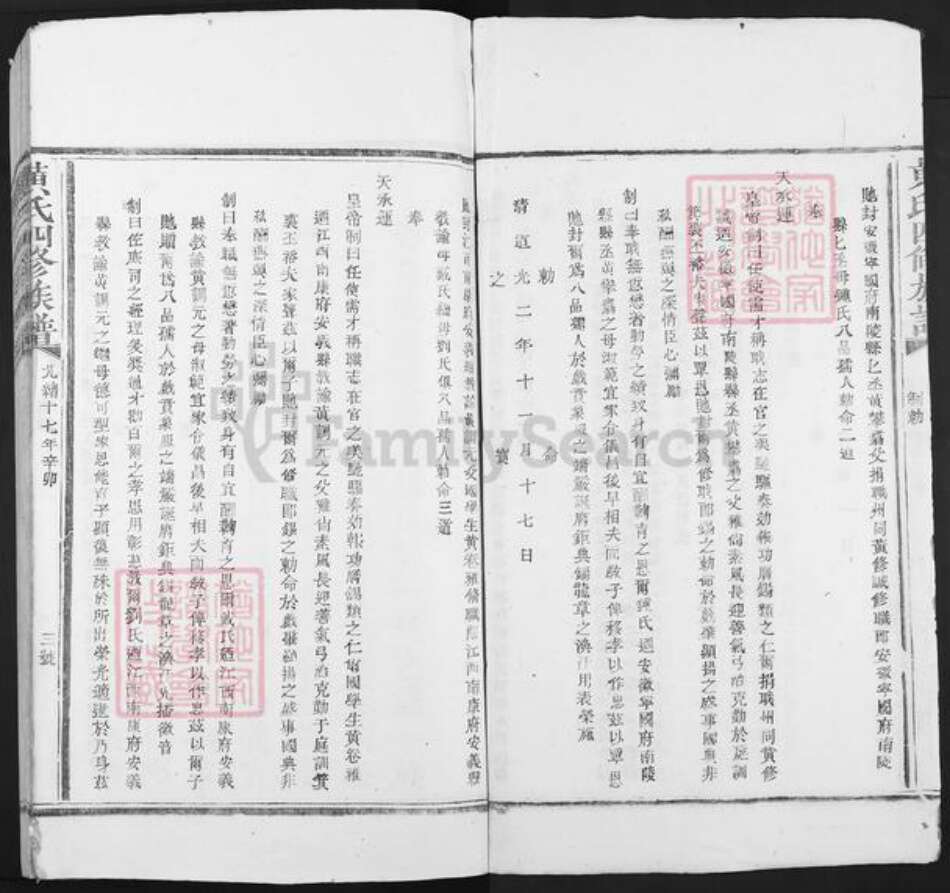 馳封安徽寧國府南陵縣縣丞黃攀翥父捐職州同黃修誠修職郎安徽寧國府南陵
縣縣丞母 氏八品孺人勅命二道
奉
天承運
皇帝制曰任使需才稱職志在官之美馳驅奏効報功膺錫類之仁爾捐職州同黃修
誠迺安徽寧國府南陵縣縣丞黃攀翥之父雅尚素風長迎善氣弓冶克勤於庭訓
箕裘不裕大家聲茲以覃恩馳封爾為修職郎錫之勅命於戲肇顯揚之盛事國典非
私酬燕翼之深情臣心彌勵
制曰奉職無愆懋著勤勞之績致身有自宜酬鞠育之恩爾 氏迺安徽寧國府南陵
縣縣丞黃攀翥之母淑範宜家令儀昌後早相夫而教子俾移孝以作忠茲以覃恩
馳封爾為八品孺人於戲賁象服之端嚴誕膺鉅典錫龍章之渙汗用表榮施
勅 命
清道光二年十一月十七日
之 寶
江西南康府安義縣教諭黃調元父國學生黃卷雅修職郎江西南康府安義縣
教諭母戴氏繼母劉氏俱八品孺人勅命三道
奉
天承運
皇帝制曰任使需才稱職志在官之美馳驅奏効報功膺錫類之仁爾國學生黃卷雅
迺江西南康府安義縣教諭黃調元之父雅尚素風長迎善氣弓冶克勤于庭訓箕
裘丕裕大家聲茲以覃恩馳封爾為修職郎錫之勅命於戲肇顯揚之盛事國典非
私酬燕翼之深情臣心彌勵
制曰奉職無愆懋著勤勞之績致身有自宜酬鞠育之恩爾戴氏迺江西南康府安義
縣教諭黃調元之母淑範宜家令儀昌後早相夫而教子俾移孝以作忠茲以爾子
馳贈爾為八品孺人於戲賁象服之端嚴誕膺鉅典錫龍章之渙汗允播徽音
制曰在庶司之經理爰獎過才勸百爾之孝思用彰慈教爾劉氏迺江西南康府安義
縣教諭黃調元之繼母德可型家恩能育子顧復無殊於所出榮光適逮於乃身茲
黃氏四修族譜
光緒十七年辛卯
三號
黃氏四修族譜
誥勅
FamilySearch